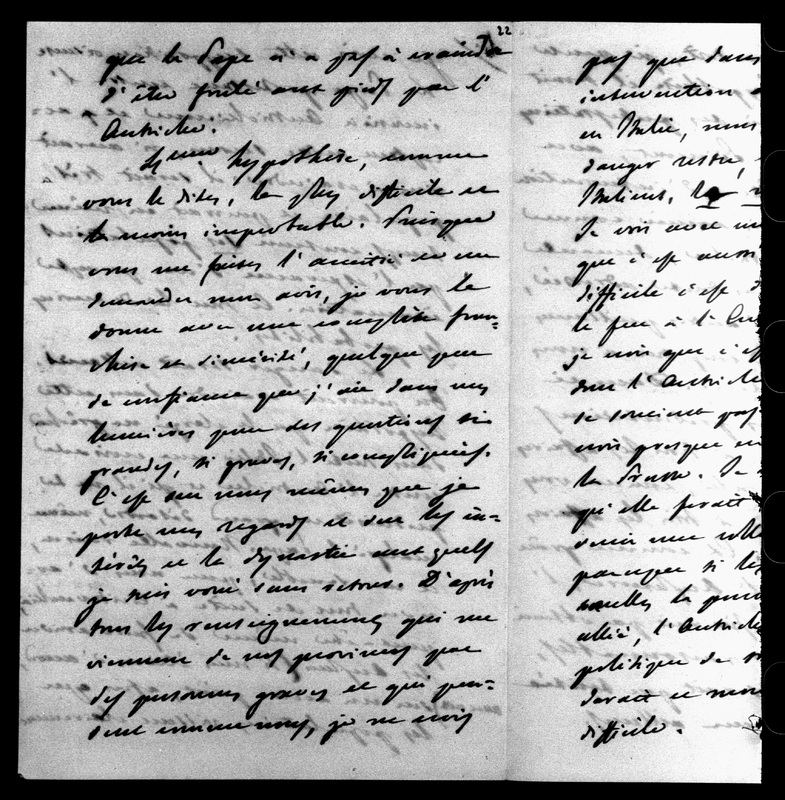 22
que le Pape n'a pas à craindre
d'être foulé aux pieds par l'
Autriche.
hypothèse, comme
vous le dites, la plus difficile et
la moins improbable. Puisque
vous me faites l'amitié de me
demander mon avis, je vous le
donne avec une complète fran-
chise et sincérité, quelque peu
de confiance que j'aie dans mes
lumières pour des questions si
grandes, si graves, si compliquées.
C'est sur nous mêmes que je
porte mes regards et sur les in-
térêts de la dynastie aux quels
je suis voué sans retour. D'après
tous les renseignements qui me
viennent de nos provinces par
des personnes graves et qui pen-
sent comme nous, je ne crois
pas que dans
intervention
en Italie, nous
danger
Italiens,
Je vois avec
que c'est aussi
difficile c'est
le feu à l'
je crois que c'est
dont l'Autriche
se soucient pas
crois presque
la Prusse. Je
qu'elle ferait
une
parce que si les
la
allié, l'Autriche
politique de
devait
difficile.